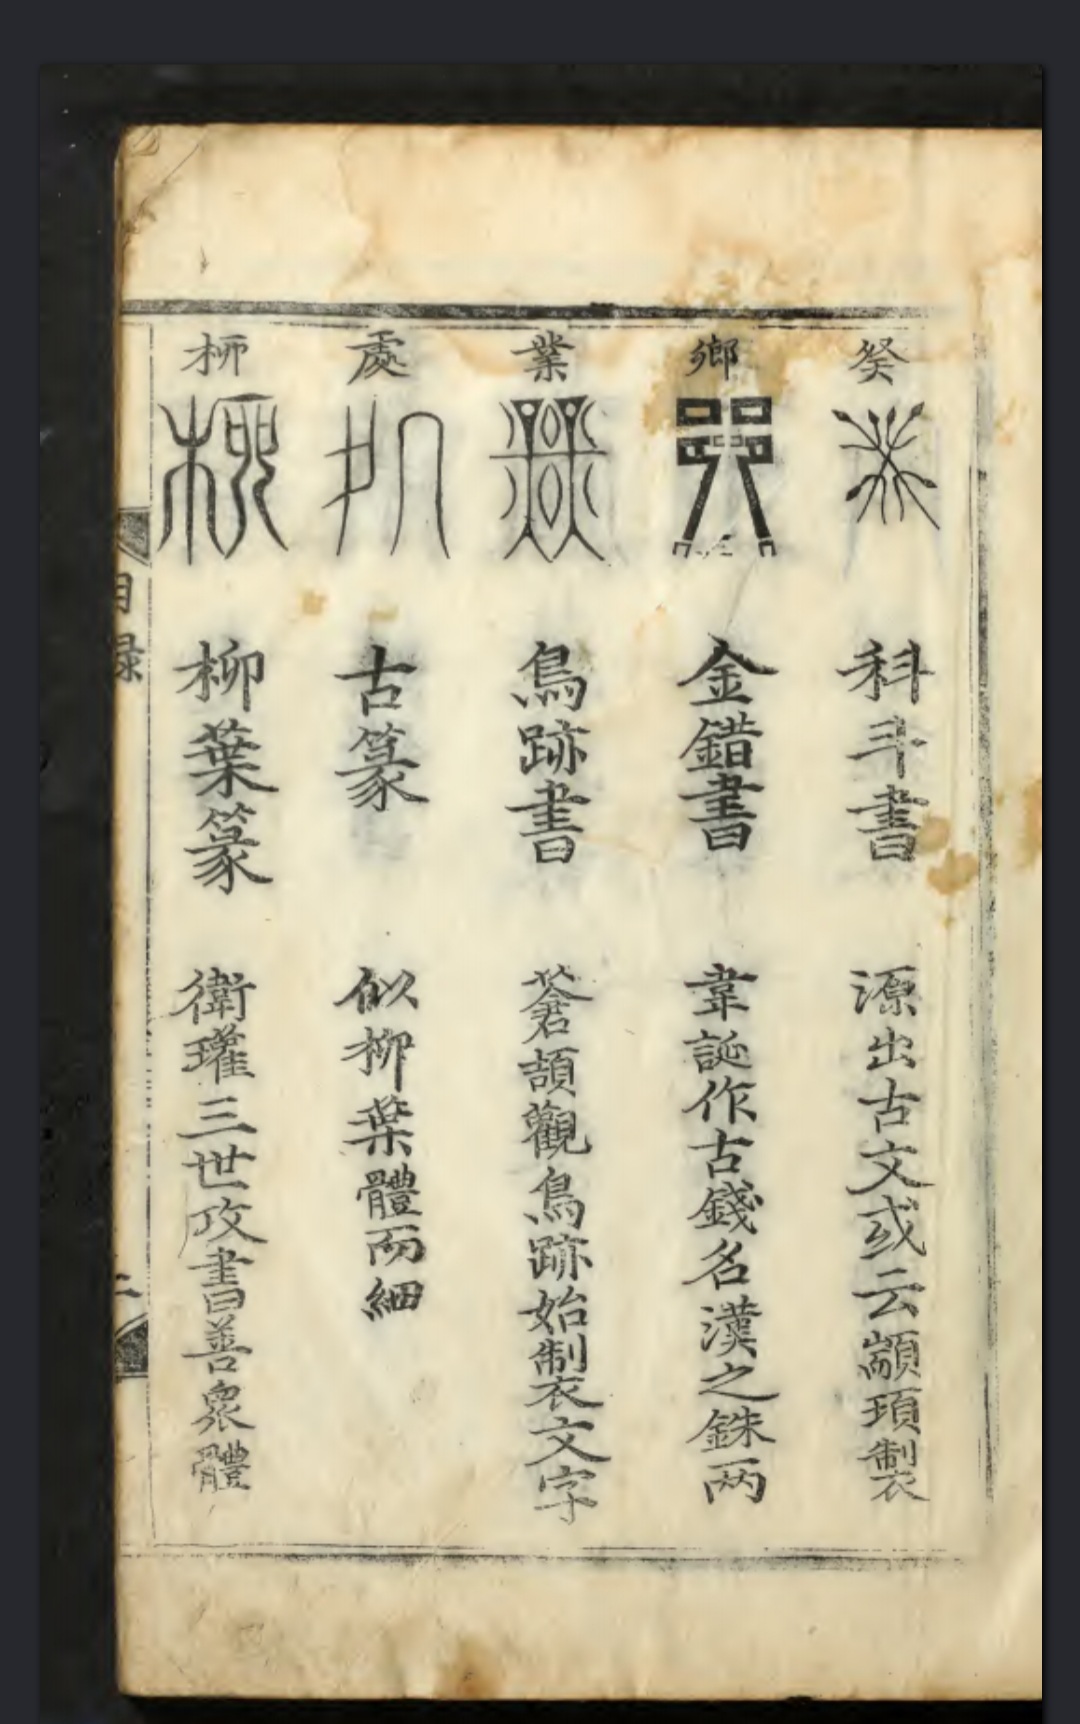 癸 科斗書 源出古文或云顓頊製
鄉 金錯書 韋誕作古錢名漢之銖两
業 鳥跡書 蒼頡觀鳥跡始製文字
處 古篆 似柳葉體而細
桺 柳葉篆 衛瓘三世攻書善衆體
目録
二